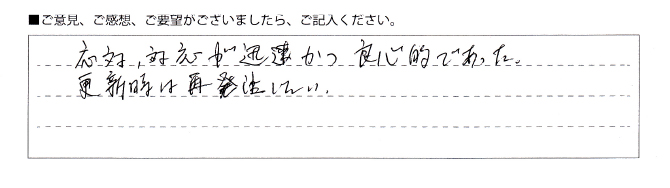 ■ご意見、ご感想、ご要望がございましたら、ご記入ください。
応対,対応が迅速かつ良心的であった.
更新時は再発注したい.